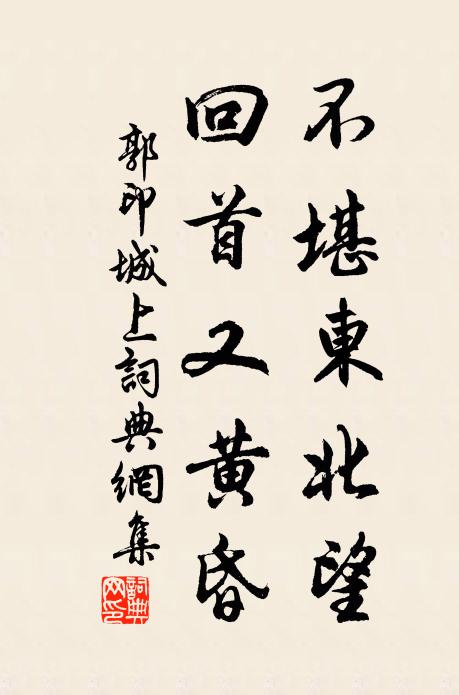 不堪東北望
回首又黃昏
郭印城上詞典網集
詞典网印